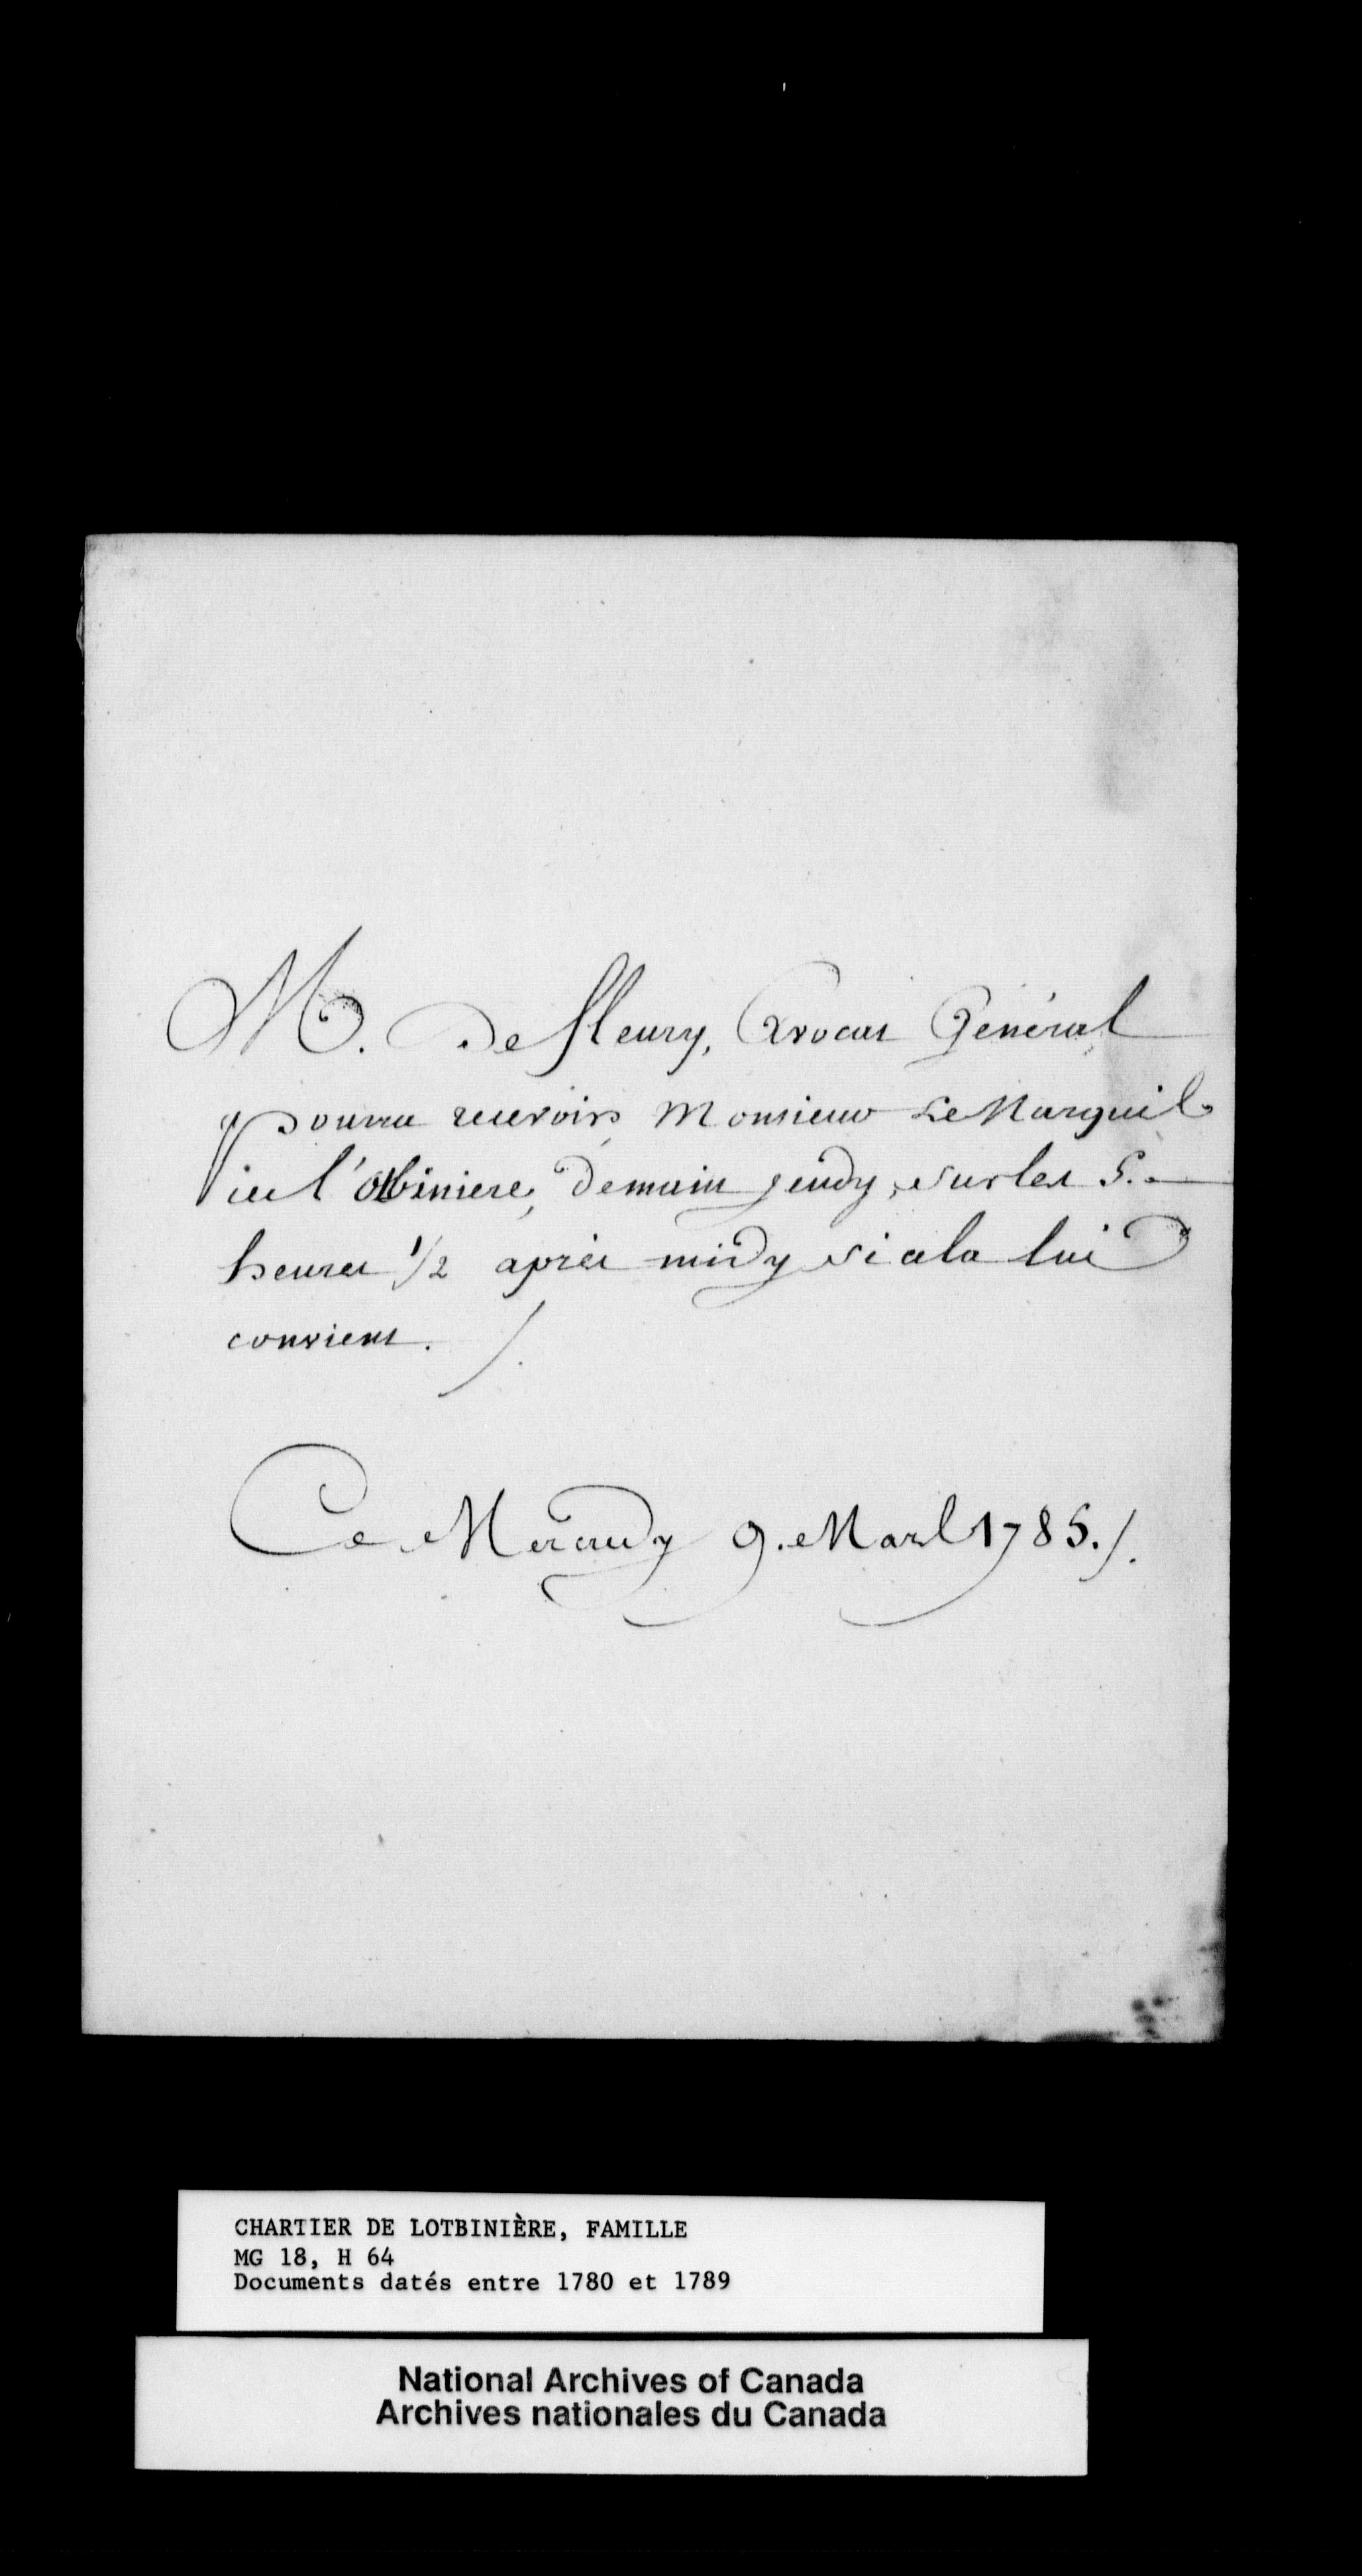 M. De fleury, Avocat Général
pourra recevoir Monsieur Le Marquis
de l'otbiniere, demain jeudy, sur les 5.
heures 1/2 après midy si cela lui
convient. /.
Ce Mercredy 9. Mars 1785. /.
CHARTIER DE LOTBINIÈRE, FAMILLE
MG 18, H 64
Documents datés entre 1780 et 1789
National Archives of Canada
Archives nationales du Canada